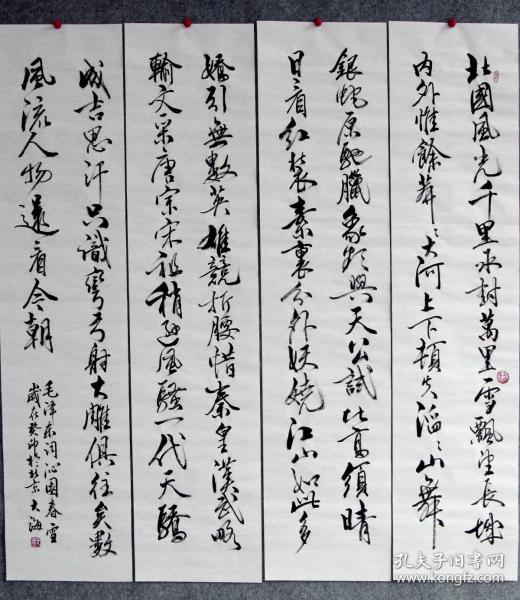 北國風光千里冰封萬里雪飄望長城
内外惟餘莽〻大河上下頓失滔〻山舞
銀蛇原馳臘象欲與天公試比高須晴
日看紅裝素裹分外妖嬈江山如此多
嬌引無數英雄競折腰惜秦皇漢武略
輸文采唐宗宋祖稍遜風騷一代天驕
成吉思汗只識彎弓射大雕俱往矣數
風流人物還看今朝
毛澤東词沁園春雪
歲在癸於北京大海
孔夫子旧书网
www.kongfz.com